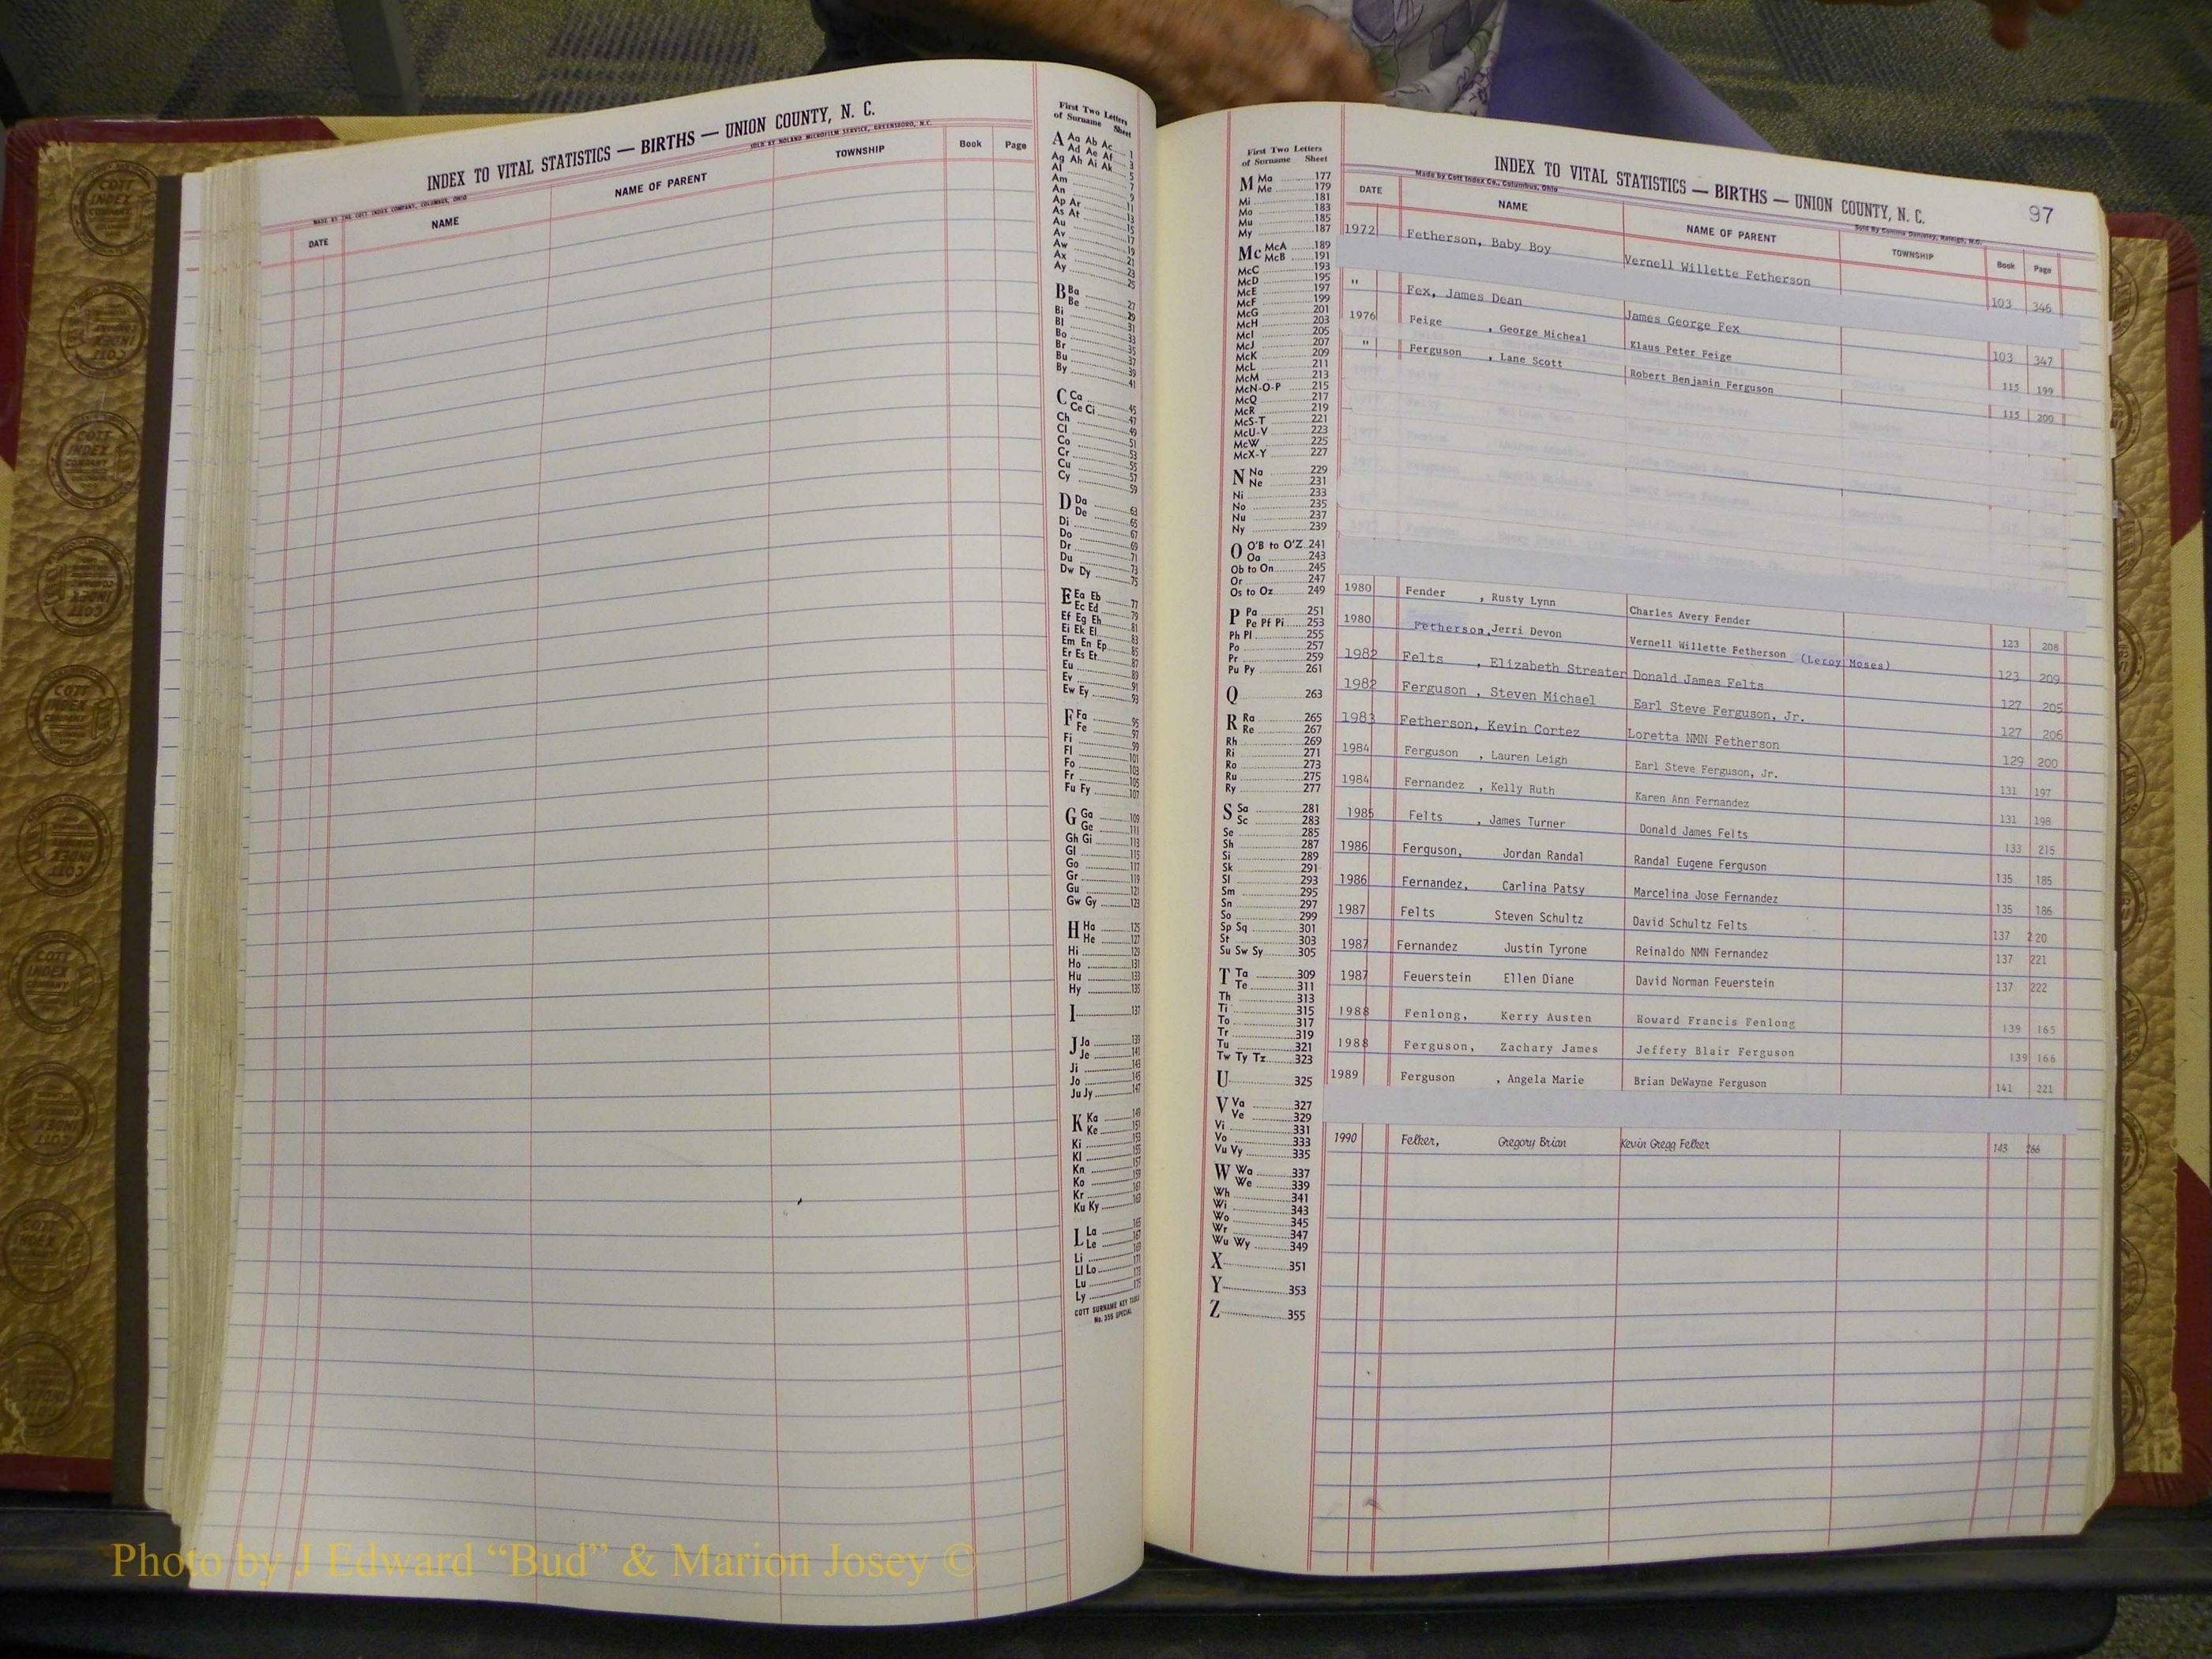 INDEX TO VITAL STATISTICS — BIRTHS — UNION COUNTY, N. C.
MADE BY THE COTT INDEX COMPANY, COLUMBUS, OHIO SOLD BY NOLAND MICROFILM SERVICE, GREENSBORO, N.C.
DATE NAME NAME OF PARENT TOWNSHIP Book Page
First Two Letters
of Surname Sheet
A Aa Ab Ac 1
Ad Ae Af 3
Ag Ah Ai Ak 5
Al 7
Am 9
An 11
Ap Ar 13
As At 15
Au 17
Av 19
Aw 21
Ax 23
Ay 25
B Ba 27
Be 29
Bi 31
Bl 33
Bo 35
Br 37
Bu 39
By 41
C Ca 45
Ce Ci 47
Ch 49
Cl 51
Co 53
Cr 55
Cu 57
Cy 59
D Da 63
De 65
Di 67
Do 69
Dr 71
Du 73
Dw Dy 75
E Ea Eb 77
Ec Ed 79
Ef Eg Eh 81
Ei Ek El 83
Em En Ep 85
Er Es Et 87
Eu 89
Ev 91
Ew Ey 93
F Fa 95
Fe 97
Fi 99
Fl 101
Fo 103
Fr 105
Fu Fy 107
G Ga 109
Ge 111
Gh Gi 113
Gl 115
Go 117
Gr 119
Gu 121
Gw Gy 123
H Ha 125
He 127
Hi 129
Ho 131
Hu 133
Hy 135
I 137
J Ja 139
Je 141
Ji 143
Jo 145
Ju Jy 147
K Ka 149
Ke 151
Ki 153
Kl 155
Kn 157
Ko 159
Kr 161
Ku Ky 163
L La 165
Le 167
Li 169
Ll Lo 171
Lu 173
Ly 175
COTT SURNAME KEY TABLE
No. 355 SPECIAL
First Two Letters
of Surname Sheet
M Ma 177
Me 179
Mi 181
Mo 183
Mu 185
My 187
Mc McA 189
McB 191
McC 193
McD 195
McE 197
McF 199
McG 201
McH 203
McI 205
McJ 207
McK 209
McL 211
McM 213
McN-O-P 215
McQ 217
McR 219
McS-T 221
McU-V 223
McW 225
McX-Y 227
N Na 229
Ne 231
Ni 233
No 235
Nu 237
Ny 239
O O'B to O'Z 241
Oa 243
Ob to On 245
Or 247
Os to Oz 249
P Pa 251
Pe Pf Pi 253
Ph Pl 255
Po 257
Pr 259
Pu Py 261
Q 263
R Ra 265
Re 267
Rh 269
Ri 271
Ro 273
Ru 275
Ry 277
S Sa 281
Sc 283
Se 285
Sh 287
Si 289
Sk 291
Sl 293
Sm 295
Sn 297
So 299
Sp Sq 301
St 303
Su Sw Sy 305
T Ta 309
Te 311
Th 313
Ti 315
To 317
Tr 319
Tu 321
Tw Ty Tz 323
U 325
V Va 327
Ve 329
Vi 331
Vo 333
Vu Vy 335
W Wa 337
We 339
Wh 341
Wi 343
Wo 345
Wr 347
Wu Wy 349
X 351
Y 353
Z 355
INDEX TO VITAL STATISTICS — BIRTHS — UNION COUNTY, N. C. 97
Made by Cott Index Co., Columbus, Ohio
DATE NAME NAME OF PARENT TOWNSHIP Book Page
1972 Fetherson, Baby Boy Vernell Willette Fetherson 103 346
" Fex, James Dean James George Fex 103 347
1976 Feige , George Micheal Klaus Peter Feige 115 199
" Ferguson , Lane Scott Robert Benjamin Ferguson 115 200
1980 Fender , Rusty Lynn Charles Avery Fender 123 208
1980 Fetherson, Jerri Devon Vernell Willette Fetherson (Leroy Moses) 123 209
1982 Felts , Elizabeth Streater Donald James Felts 127 205
1982 Ferguson , Steven Michael Earl Steve Ferguson, Jr. 127 206
1983 Fetherson, Kevin Cortez Loretta NMN Fetherson 129 200
1984 Ferguson , Lauren Leigh Earl Steve Ferguson, Jr. 131 197
1984 Fernandez , Kelly Ruth Karen Ann Fernandez 131 198
1985 Felts , James Turner Donald James Felts 133 215
1986 Ferguson, Jordan Randal Randal Eugene Ferguson 135 185
1986 Fernandez, Carlina Patsy Marcelina Jose Fernandez 135 186
1987 Felts Steven Schultz David Schultz Felts 137 220
1987 Fernandez Justin Tyrone Reinaldo NMN Fernandez 137 221
1987 Feuerstein Ellen Diane David Norman Feuerstein 137 222
1988 Fenlong, Kerry Austen Howard Francis Fenlong 139 165
1988 Ferguson, Zachary James Jeffery Blair Ferguson 139 166
1989 Ferguson , Angela Marie Brian DeWayne Ferguson 141 221
1990 Felker, Gregory Brian Kevin Gregg Felker 143 266
Photo by J Edward “Bud” & Marion Josey ©